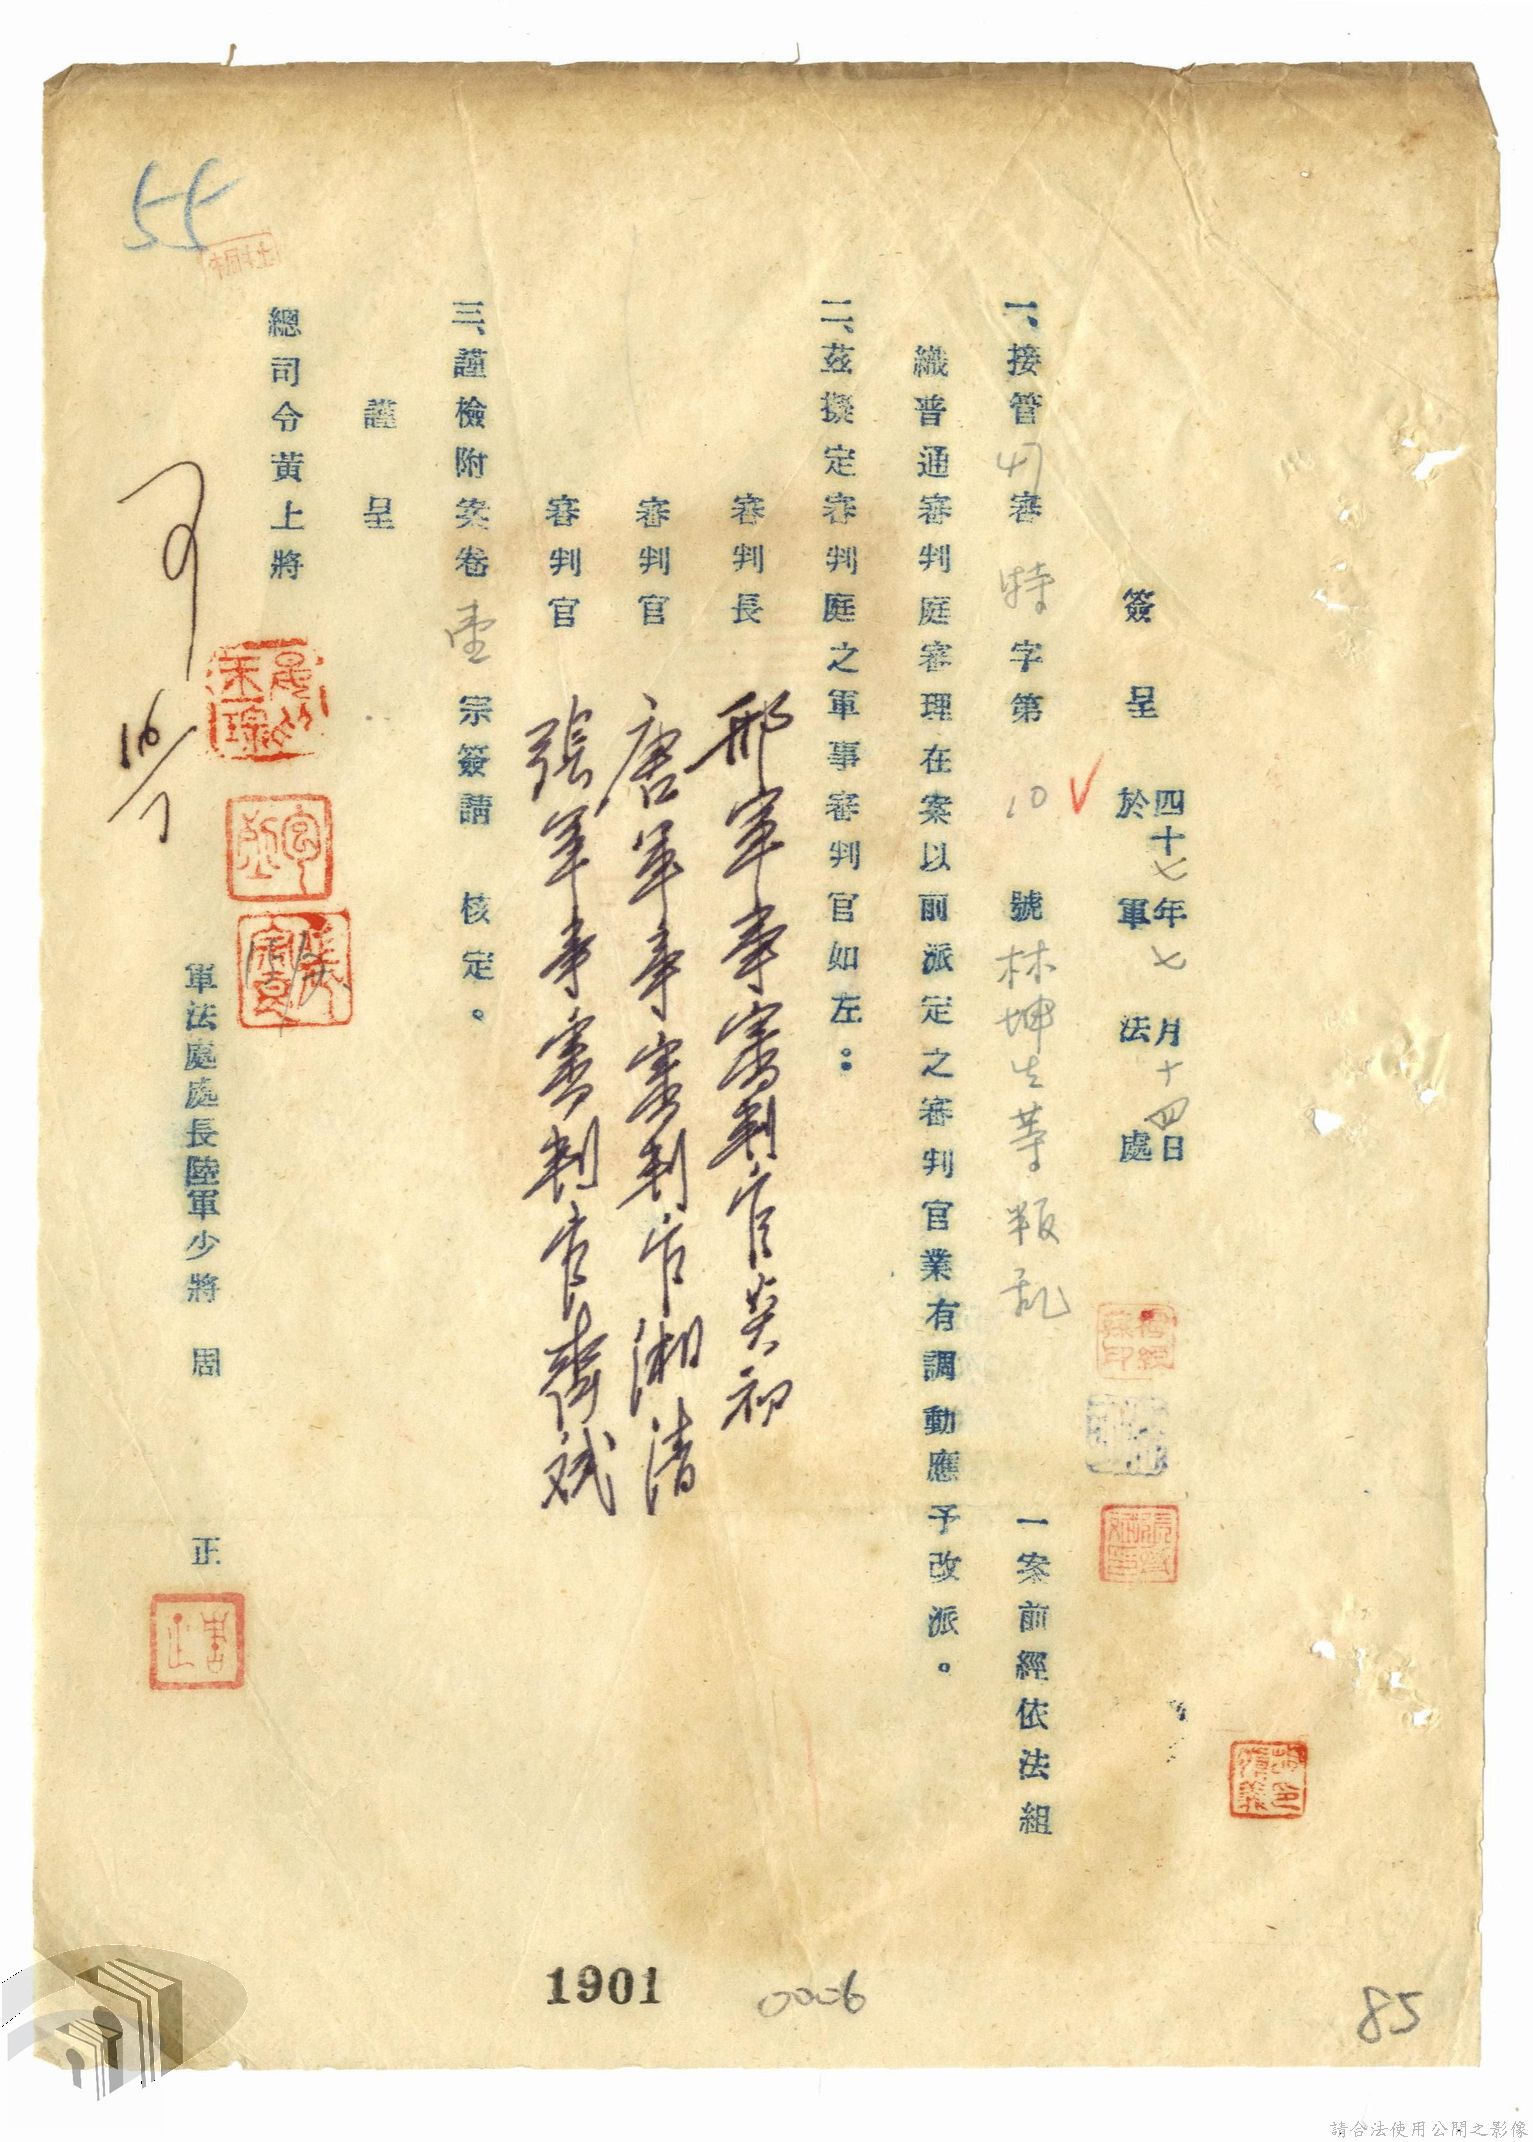 簽呈 四十七年七月十四日
於軍法處
一、接管47審特字第10號林坤生等叛乱一案前經依法組
織普通審判庭審理在案以前派定之審判官業有調動應予改派。
二、茲擬定審判庭之軍事審判官如左：
審判長 邢軍事審判官炎初
審判官 唐軍事審判官湘清
審判官 張軍事審判官齊斌
三、謹檢附案卷壹宗簽請 核定。
謹呈
總司令黃上將
可
16/7
軍法處處長陸軍少將 周 正
周正
55
1901
0006
85
請合法使用公開之影像